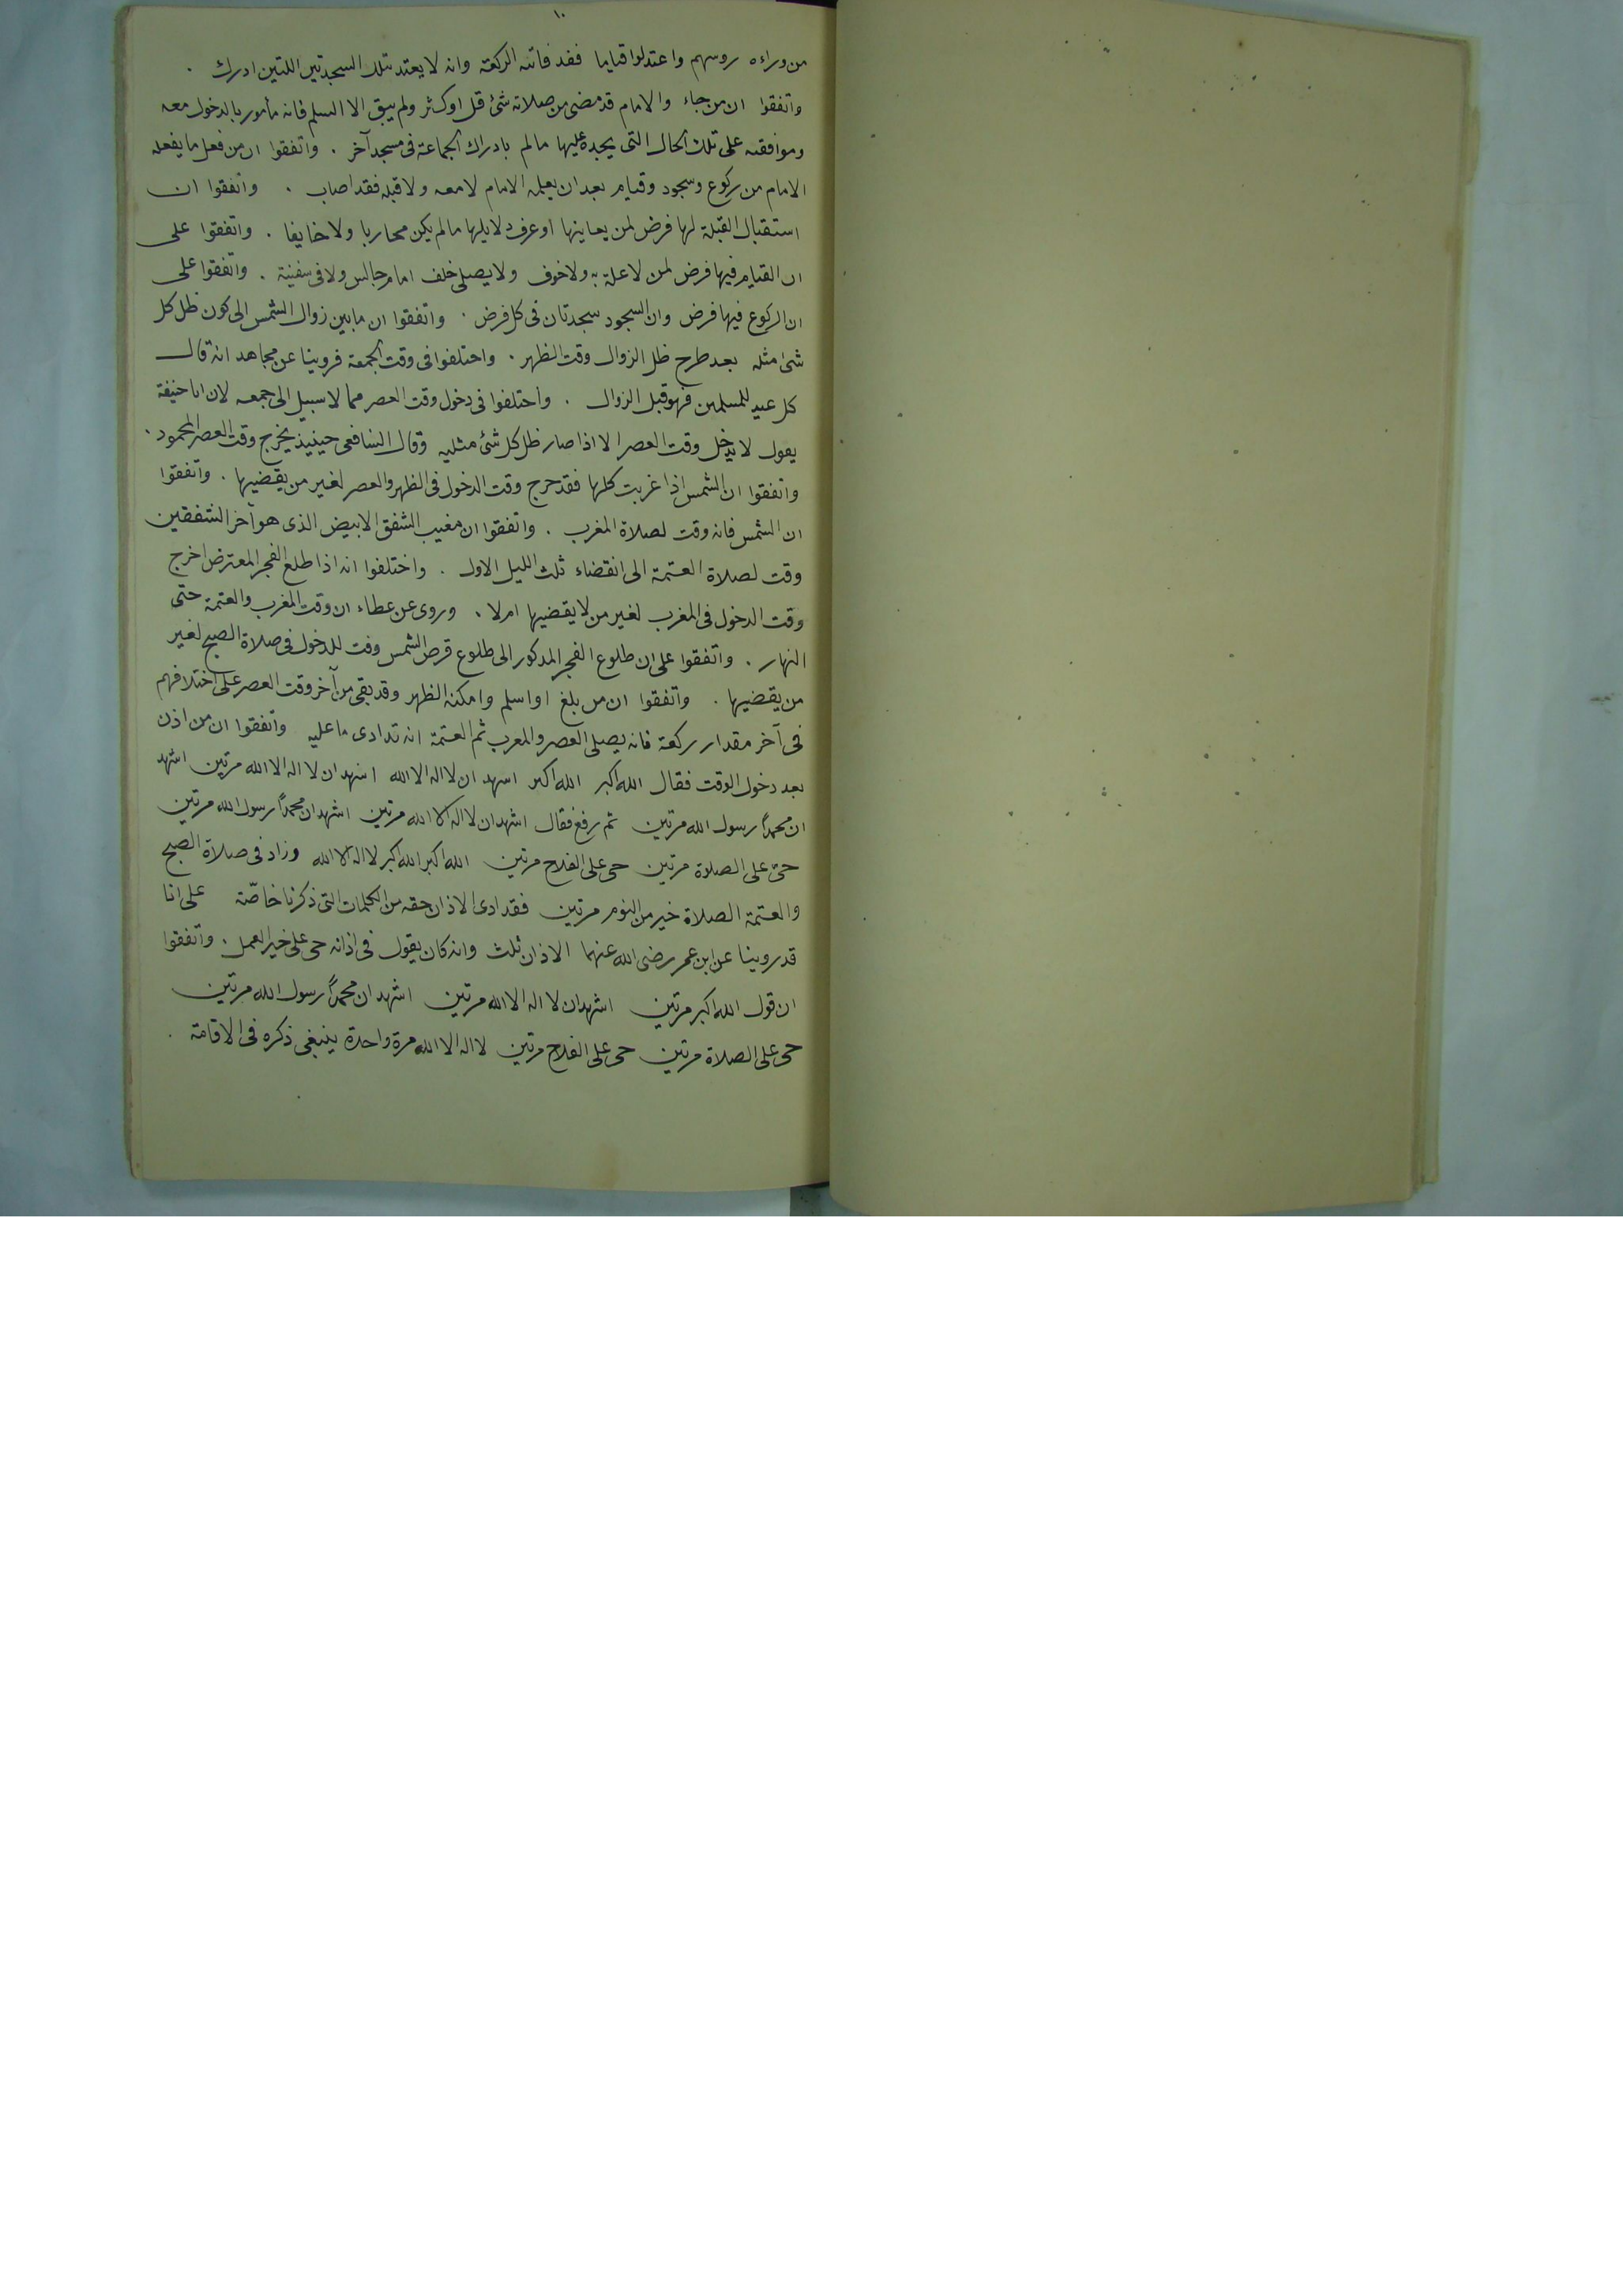 ١٠
من وراءه روسهم واعتدلوا قياما فقد فاتته الركعة وانه لا يعتد بتلك السجدتين اللتين ادرك .
واتفقوا ان من جاء والامام قد مضى من صلاته شئ قل او كثر ولم يبق الا السلم فانه مأمور بالدخول معه
وموافقته على تلك الحال التى يجده عليها مالم يادرك الجماعة فى مسجد آخر . واتفقوا ان من فعل ما يفعله
الامام من ركوع وسجود وقيام بعد ان يعلمه الامام لا معه ولا قبله فقد اصاب . واتفقوا ان
استقبال القبلة لها فرض لمن يعاينها او عرف دلايلها مالم يكن محاربا ولا خايفا . واتفقوا على
ان القيام فيها فرض لمن لا علة به ولا خوف ولا يصلى خلف امام جالس ولا فى سفينة . واتفقوا على
ان الركوع فيها فرض وان السجود سجدتان فى كل فرض . واتفقوا ان ما بين زوال الشمس الى كون ظل كل
شئ مثله بعد طرح ظل الزوال وقت الظهر . واحتلفوا فى وقت الجمعة فروينا عن مجاهد انه قال
كل عيد للمسلمين فهو قبل الزوال . واحتلفوا فى دخول وقت العصر مما لا سبيل الى جمعه لان ابا حنيفة
يقول لا يدخل وقت العصر الا اذا صار ظل كل شئ مثليه وقال الشافعى حينيذ يخرج وقت العصر المحمود .
واتفقوا ان الشمس اذا غربت كلها فقد حرج وقت الدخول فى الظهر والعصر لغير من يقضيها . واتفقوا
ان الشمس فانه وقت لصلاة المغرب . واتفقوا ان مغيب الشفق الابيض الذى هو آخر الشفقين
وقت لصلاة العتمة الى انقضاء ثلث الليل الاول . واختلفوا انه اذا طلع الفجر المعترض اخرج
وقت الدخول فى المغرب لغير من لا يقضيها ام لا . وروى عن عطاء ان وقت المغرب والعتمة حتى
النهار . واتفقوا على ان طلوع الفجر المدكور الى طلوع قرص الشمس وقت للدخول فى صلاة الصبح لغير
من يقضيها . واتفقوا ان من بلغ او اسلم وامكنه الظهر وقد بقى من آخر وقت العصر على اختلافهم
فى آخر مقدار ركعة فانه يصلى العصر والمعرب ثم العتمة انه قد ادى ما عليه واتفقوا ان من اذن
بعد دخول الوقت فقال الله اكبر الله اكبر اشهد ان لا اله الا الله اشهد ان لا اله الا الله مرتين اشهد
ان محمداً رسول الله مرتين ثم رفع فقال اشهد ان لا اله الا الله مرتين اشهد ان محمداً رسول الله مرتين
حى على الصلاة مرتين حى على الفلاح مرتين الله اكبر الله اكبر لا اله الا الله وزاد فى صلاة الصبح
والعتمة الصلاة خير من النوم مرتين فقد ادى الاذان حقه من الكلمات التى ذكرنا خاصّة على انا
قد روينا عن ابن عمر رضى الله عنهما الاذان ثلث وانه كان يقول فى اذانه حى على خير العمل . واتفقوا
ان قول الله اكبر مرتين اشهد ان لا اله الا الله مرتين اشهد ان محمداً رسول الله مرتين
حى على الصلاة مرتين حى على الفلاح مرتين لا اله الا الله مرة واحدة ينبغى ذكره فى الاقامة .